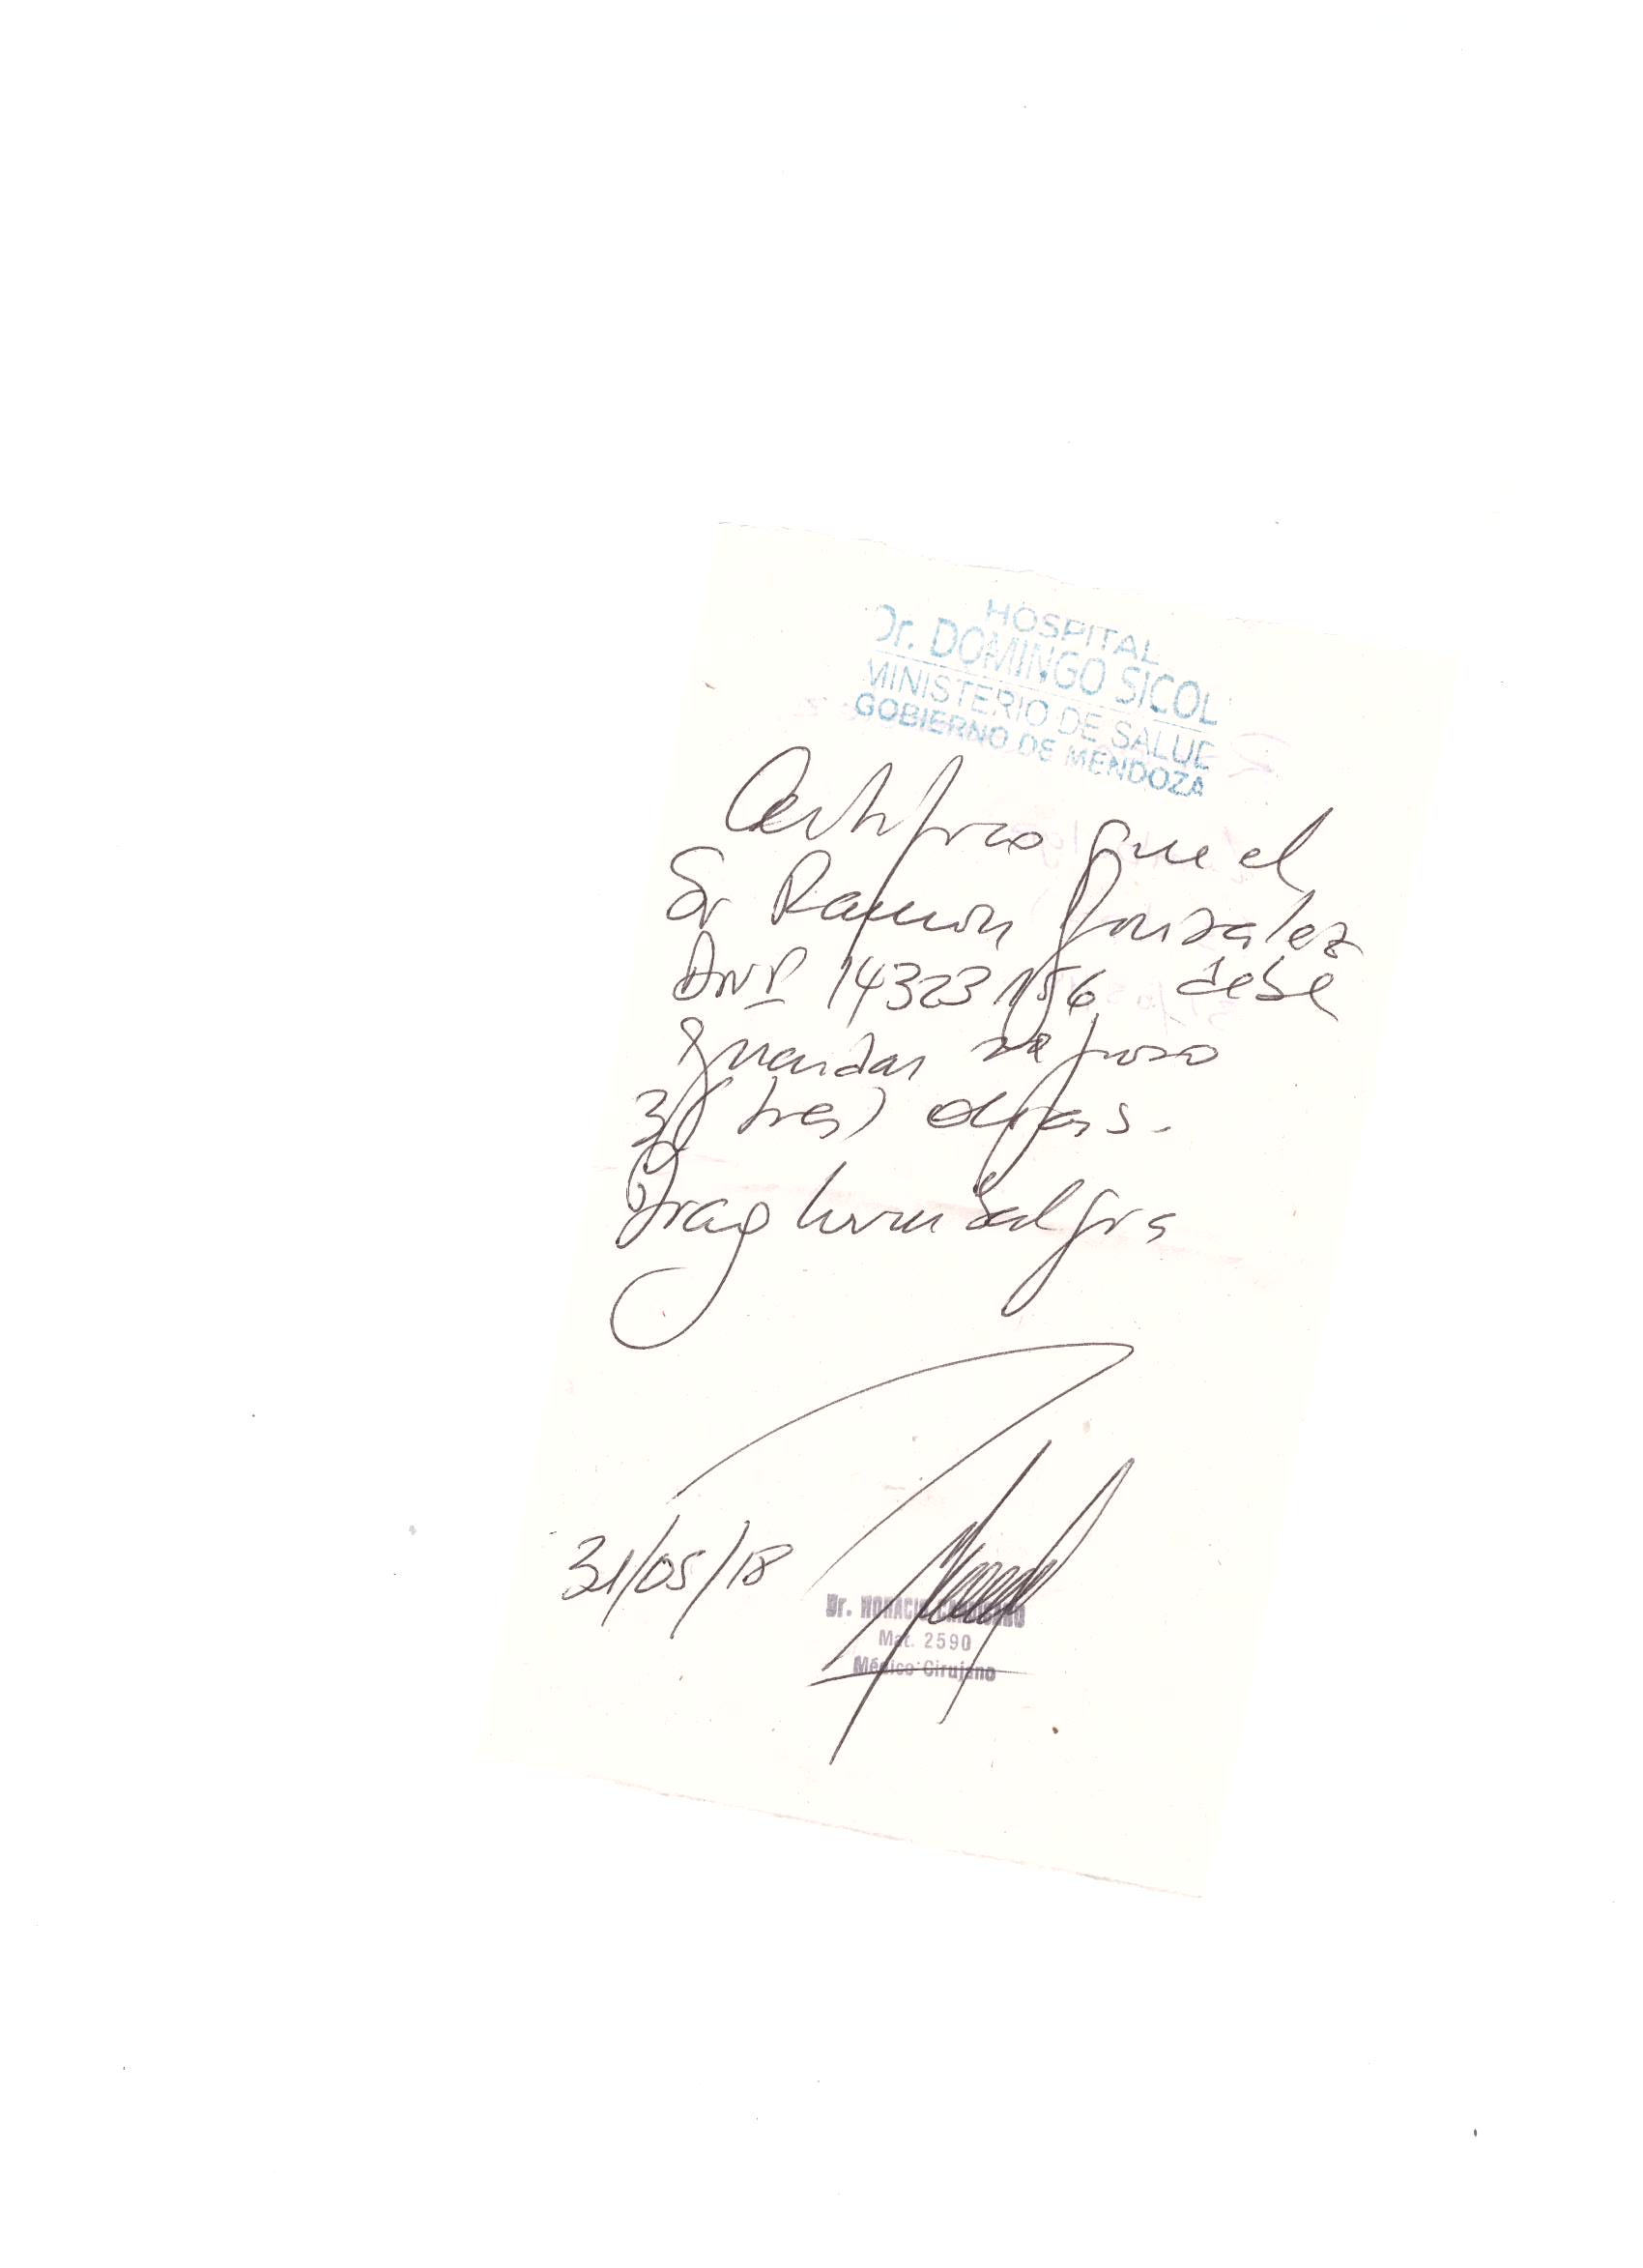 HOSPITAL
Dr. DOMINGO SICOL
MINISTERIO DE SALUD
GOBIERNO DE MENDOZA
Certifico que el
Sr Ramon Gonzalez
DNI 14323156 debe
guardar reposo
3 (tres) dias.
Diag lumbalgia
31/05/18
Dr. HORACIO
Mat. 2590
Médico Cirujano